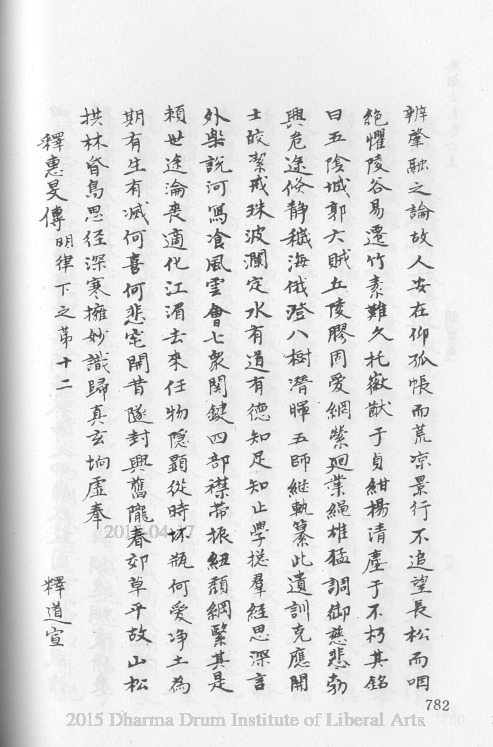 辨肇融之論故人安在仰孤帳而荒涼景行不追望長松而咽
絕懼陵谷易遷竹素難久托徽猷于貞紺揚清塵于不朽其銘
曰五陰城郭六賊丘陵膠固愛網縈迴業繩雄猛調御慈悲勃
興危途倏静穢海俄澄八樹潛暉五師継軌纂此遺訓克應開
士皎潔戒珠波瀾定水有道有德知足知止學揔羣經思深言
外樂說河寫飡風雲會七衆関鍵四部襟帶振紐頹綱緊其是
頼世途淪喪適化江湄去來任物隐顯從時坏瓶何愛净土為
期有生有滅何喜何悲窀開昔隧封興舊隴春郊草平故山松
拱林昏鳥思径深寒擁妙識歸真玄坰虛奉
釋惠旻傳 明律下之第十二 釋道宣
782
2015-04-17
2015 Dharma Drum Institute of Liberal Arts